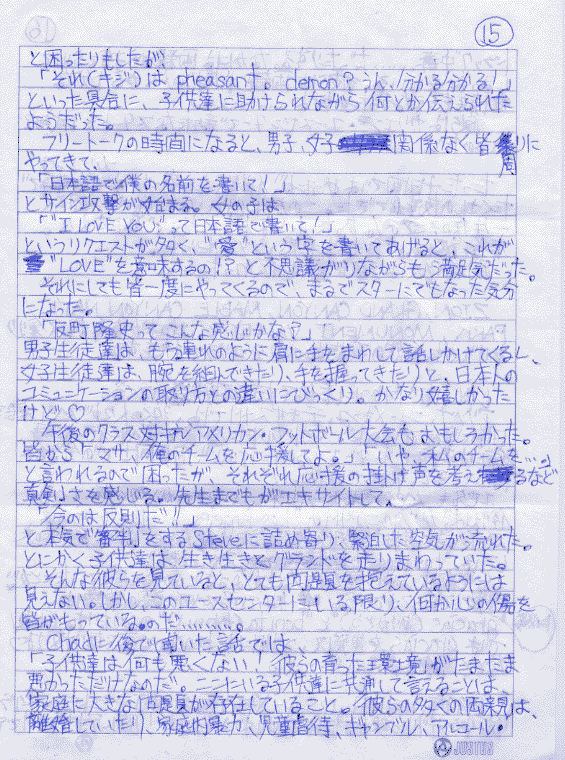 15
と困ったりもしたが、
「それ(キジ)は pheasant。demon？うん、分かる分かる！」
といった具合に、子供達に助けられながら何とか伝えられた
ようだった。
フリートークの時間になると、男子、女子関係なく皆周りに
やってきて、
「日本語で僕の名前を書いて！」
とサイン攻撃が始まる。女の子は
「"I LOVE YOU"って日本語で書いて！」
というリクエストが多く、"愛"という字を書いてあげると、これが
"LOVE"を意味するの！？と不思議がりながらも、満足気だった。
それにしても皆一度にやってくるので、まるでスターにでもなった気分
になった。
「反町隆史ってこんな感じかな？」
男子生徒達は、もう連れのように肩に手をまわして話しかけてくるし、
女子生徒達は、腕を組んできたり、手を握ってきたりと、日本人の
コミュニケーションの取り方との違いにびっくり。かなり嬉しかった
けど♡
午後のクラス対抗アメリカン・フットボール大会もおもしろかった。
皆から「マサ、俺のチームを応援してよ。」「いや、私のチームを…。」
と言われるので困ったが、それぞれ応援の掛け声を考えるなど
真剣さを感じる。先生までもがエキサイトして、
「今のは反則だ!!」
と本気で審判をするSteveに詰め寄り、緊迫した空気が流れた。
とにかく子供達は生き生きとグランドを走りまわっていた。
そんな彼らを見ていると、とても問題を抱えているようには
見えない。しかし、このユースセンターにいる限り、何か心の傷を
皆がもっているのだ…………。
Chadに後で聞いた話では、
「子供達は何も悪くない！彼らの育った環境がたまたま
悪かっただけなのだ。ここにいる子供達に共通して言えることは
家庭に大きな問題が存在していること。彼らの多くの両親は、
離婚していたり、家庭内暴力、児童虐待、ギャンブル、アルコール・